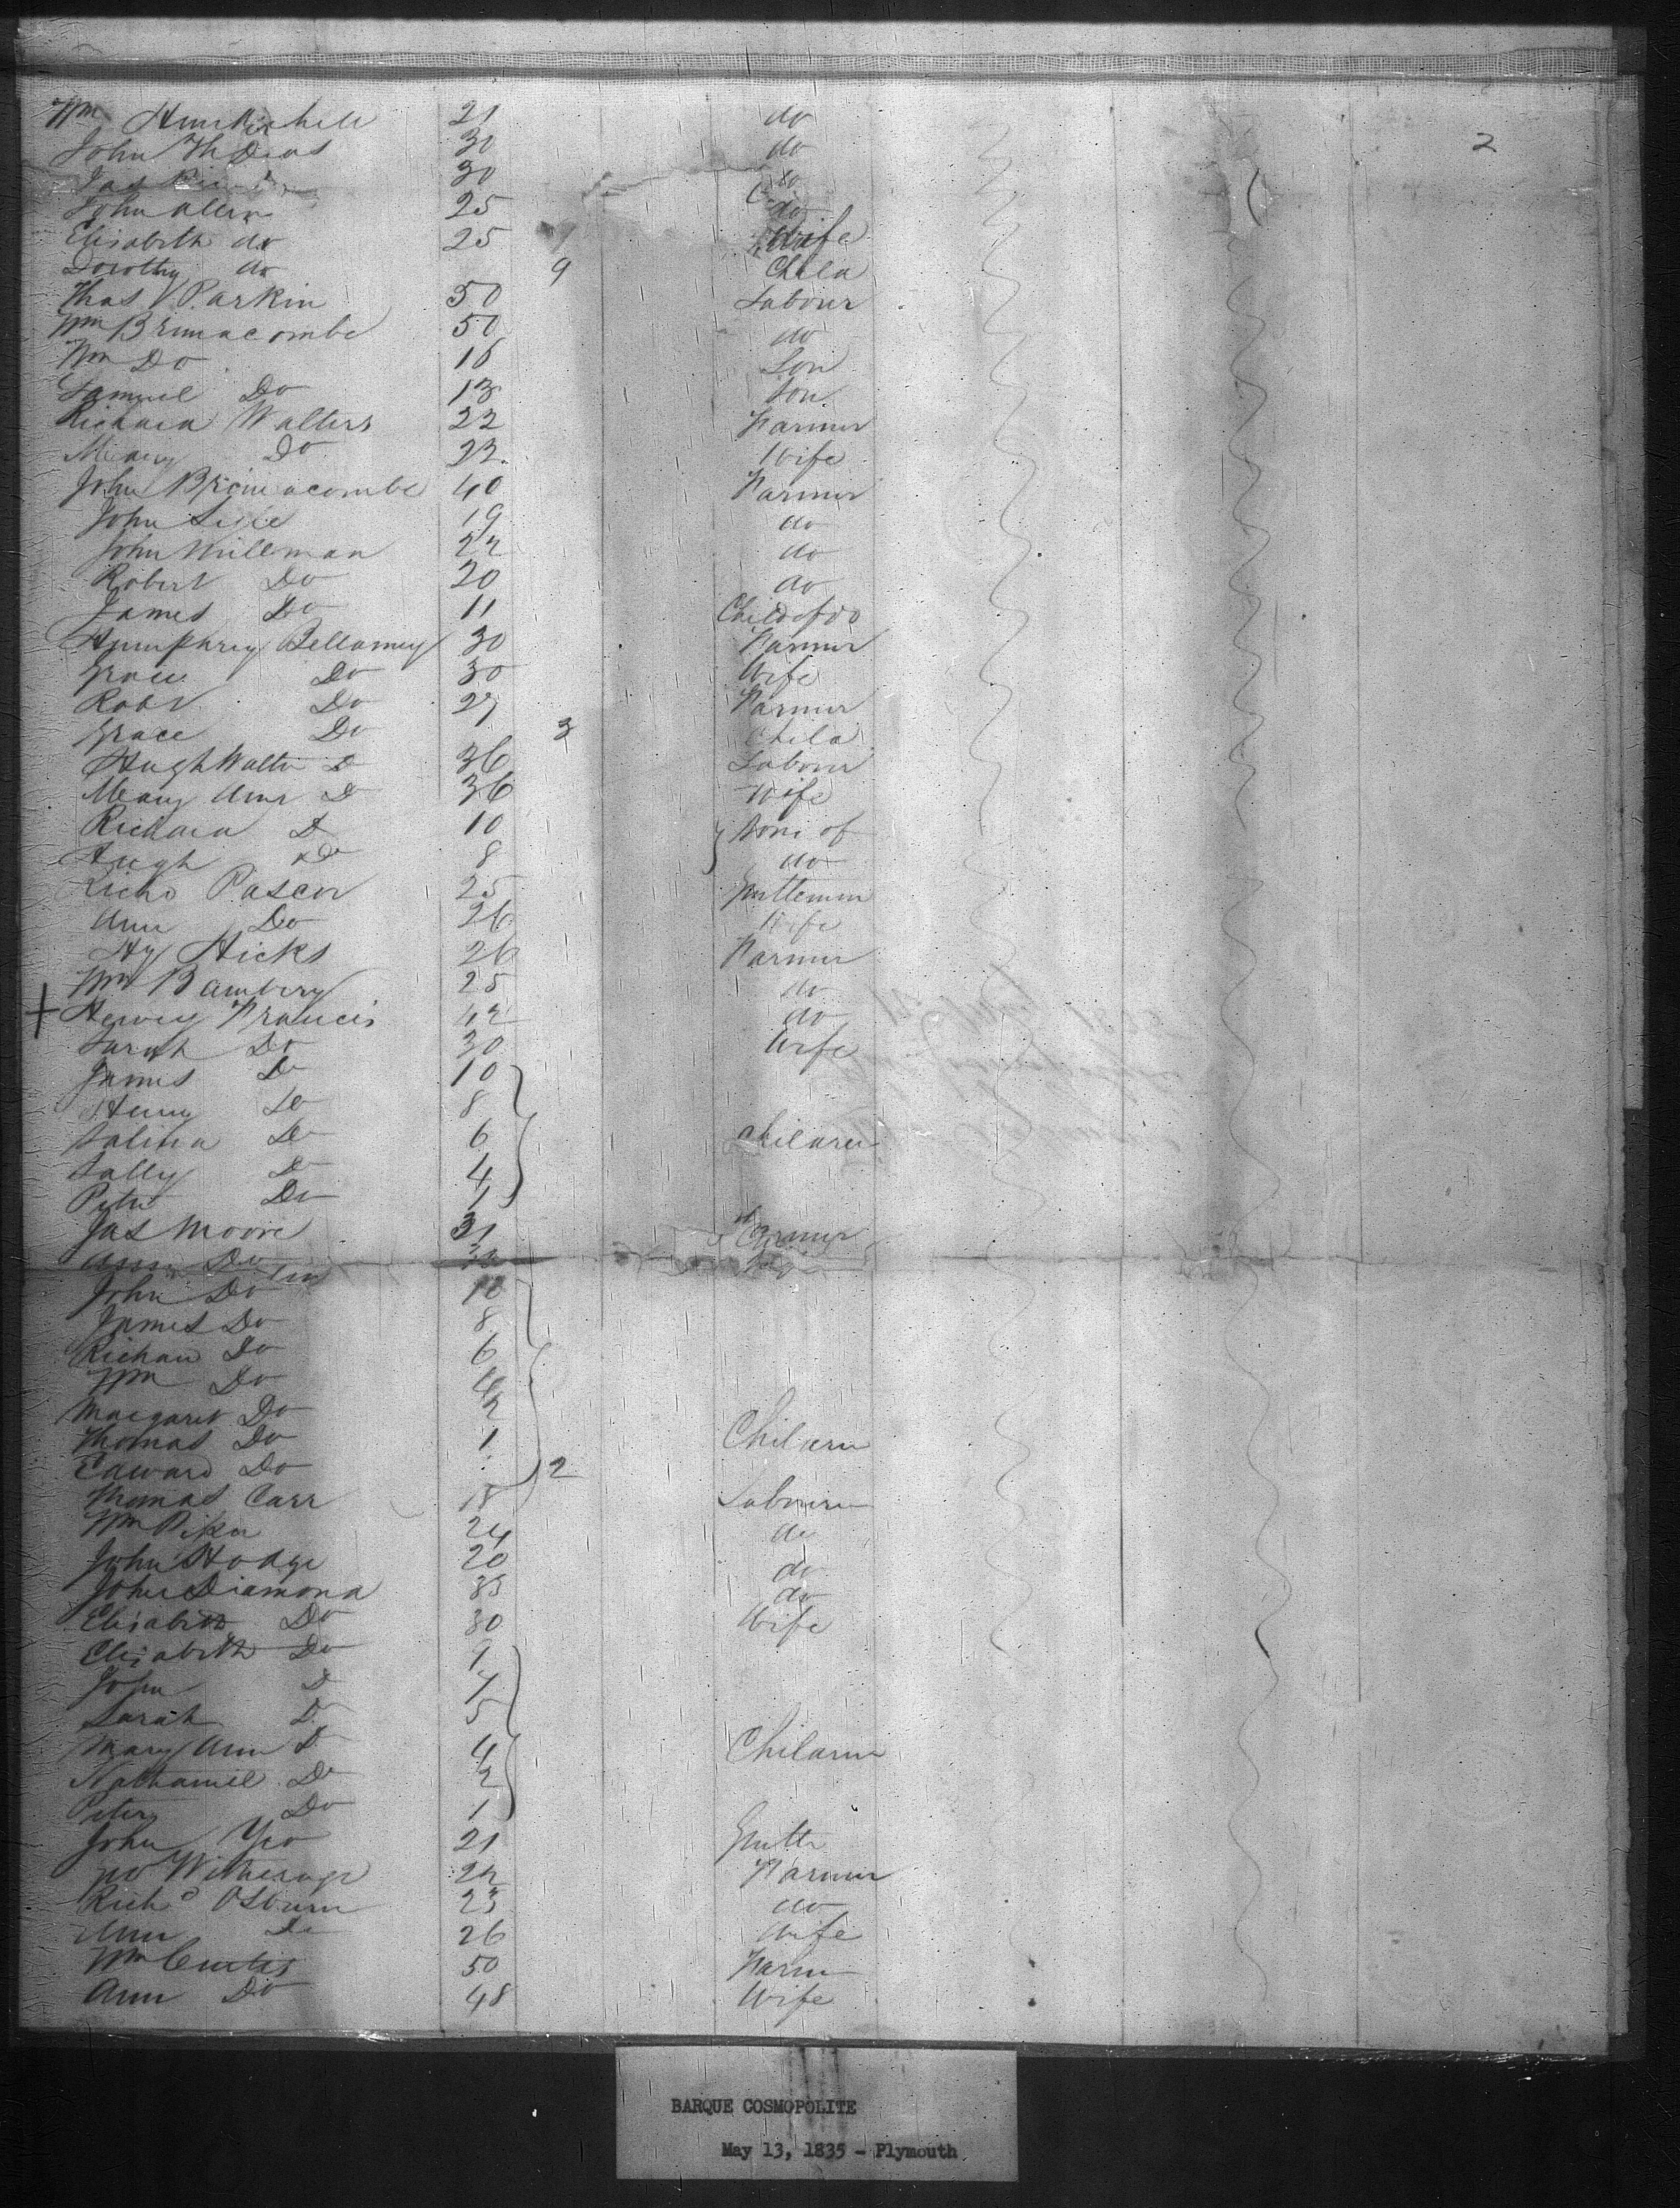 2
Wm 21 do
John Thomas 30 do
Jas 30 do
John Allen 25 do
Elisabeth do 25 Wife
Dorothy do 9 Child
Thos Parkin 50 Labour
Wm Brimacombe 50 do
Wm Do 16 Son
Samuel Do 13 Son
Richard Walters 22 Farmer
Mary Do 22 Wife
John Brimacombe 40 Farmer
John 19 do
John Millman 22 do
Robert Do 20 do
James Do 11 Child of do
Humphrey Bellamey 30 Farmer
Grace Do 30 Wife
Robt Do 27 Farmer
Grace Do 3 Child
Hugh Walter D 36 Labour
Mary Ann D 36 Wife
Richard D 10 Sons of
Hugh Do 8 do
Richd Pascor 25 Gentleman
Ann Do 26 Wife
Hy Hicks 26 Farmer
Wm Bambery 25 do
+ Hervey Francis 42 do
Sarah Do 30 Wife
James Do 10
Henry Do 8
Salina Do 6 Children
Sally Do 4
Peter Do 1
Jas Moore 31 Farmer
Do
John Do 10
James Do 8
Richard Do 6
Wm Do 4
Margaret Do 2
Thomas Do 1 Children
Edward Do 2
Thomas Carr 18 Labourer
Wm Piker 24 do
John Hodge 20 do
John Diamond 35 do
Elisabeth Do 30 Wife
Elizabeth Do 9
John D 7
Sarah D 5
Mary Ann D 4 Children
Nathaniel Do 2
Peter Do 1
John Yeo 21 Gentle
Jno Witherage 22 Farmer
Richd Osburn 23 do
Ann Do 26 Wife
Wm Curtis 50 Farm
Ann Do 48 Wife
BARQUE COSMOPOLITE
May 13, 1835 - Plymouth